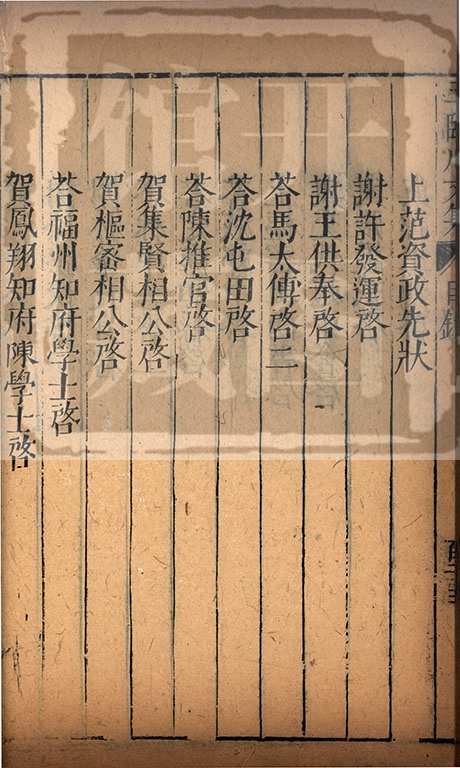 上范資政先狀
謝許發運啓
謝王供奉啓
荅馬太傅啓二
荅沈屯田啓
荅陳推官啓
賀集賢相公啓
賀樞密相公啓
荅福州知府學士啓
賀鳳翔知府陳學士啓